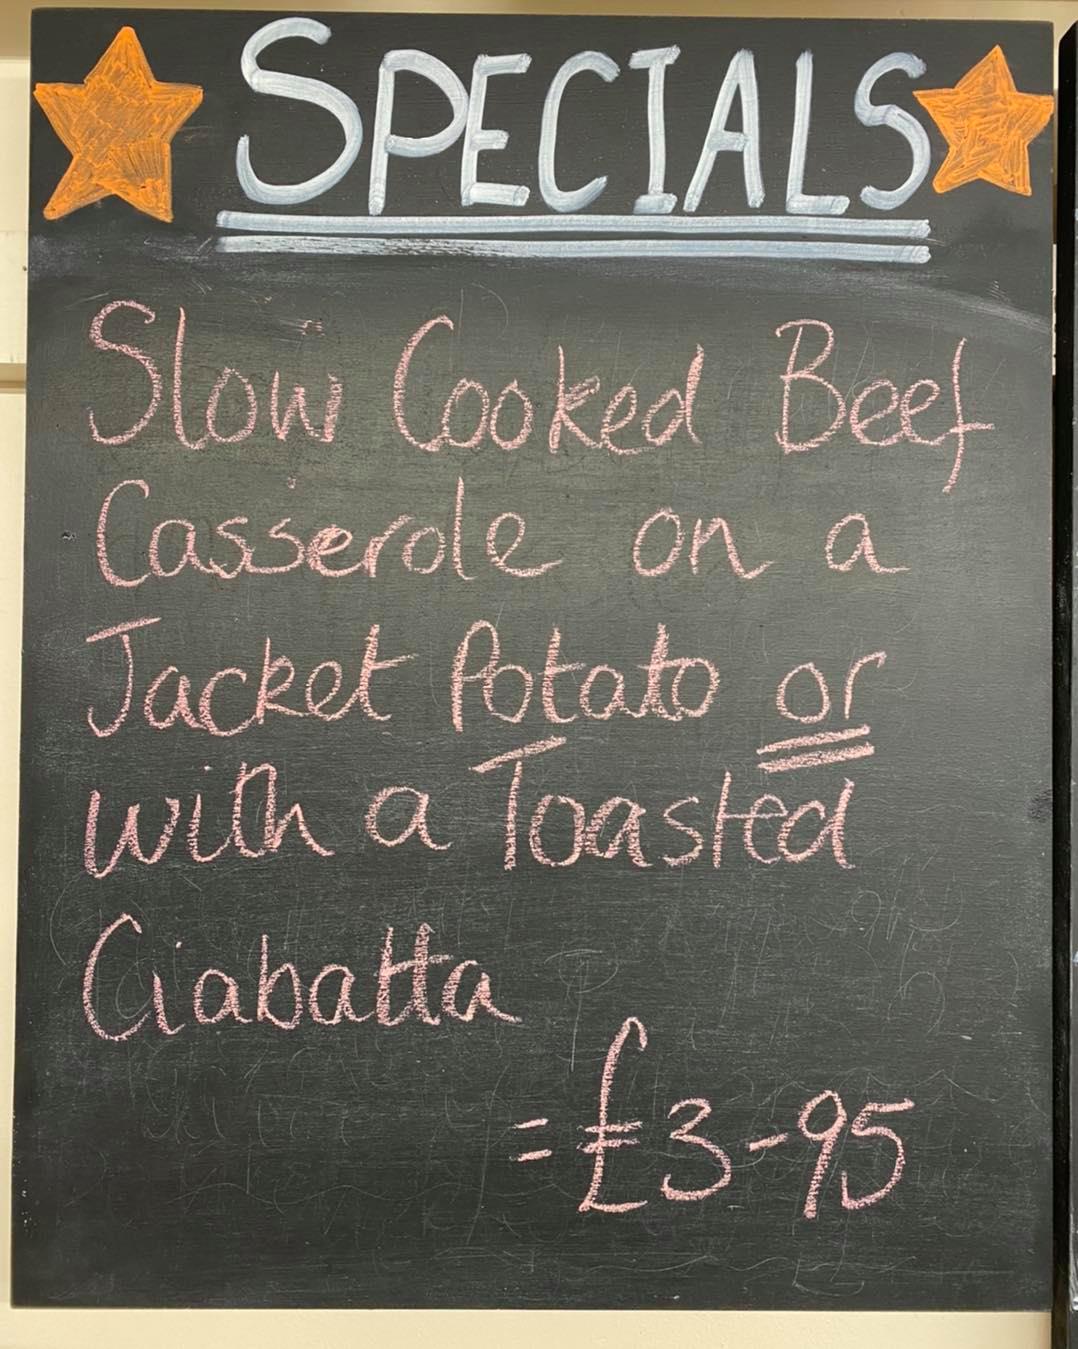 SPECIALS
Slow Cooked Beef
Casserole on a
Jacket Potato or
with a Toasted
Ciabatta
= £3-95